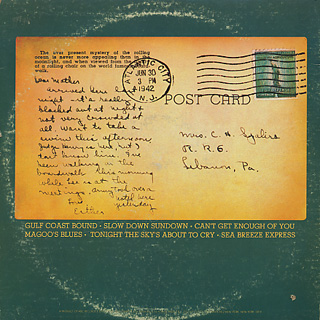 The ever present mystery of the rolling
ocean is never more appealing than in the
moonlight, and when viewed from the
of a rolling chair on the world famous
walk.
ATLANTIC CITY
JUN 30
3 PM
1942
N.J.
POST CARD
Dear Mother
Arrived here last
night - it's really
blacked out at night
not very crowded at
all. Want to take a
swim this afternoon
been walking on the
boardwalk this morning
while Lee is at the
meetings. Army took over a
hotel here
yesterday
Love
Esther
Mrs. C. H.
R. R. 6.
Lebanon, Pa.
GULF COAST BOUND • SLOW DOWN SUNDOWN • CAN'T GET ENOUGH OF YOU
MAGOO'S BLUES • TONIGHT THE SKY'S ABOUT TO CRY • SEA BREEZE EXPRESS